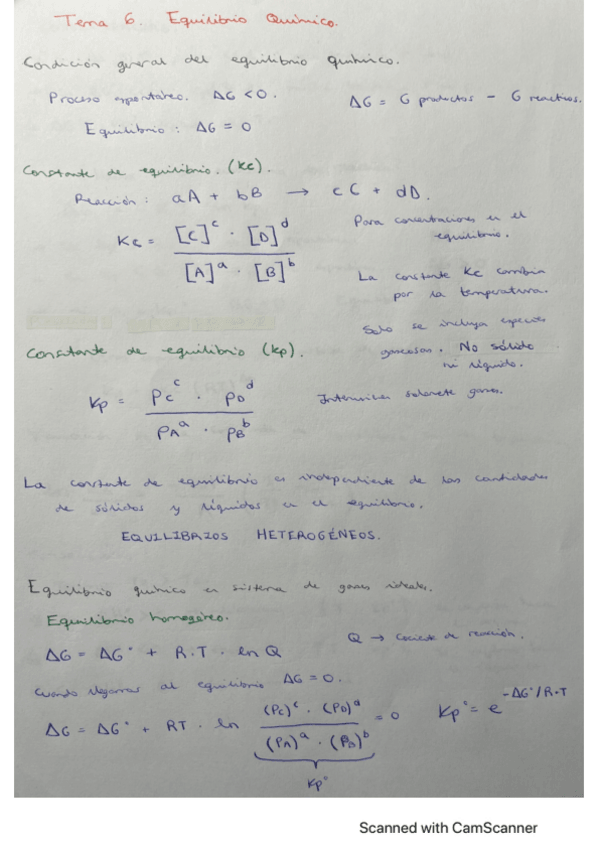 Tema 6. Equilibrio Químico.
Condición general del equilibrio químico.
Proceso espontáneo. ΔG < 0. ΔG = G productos - G reactivos.
Equilibrio : ΔG = 0
Constante de equilibrio. (Kc).
Reacción : aA + bB → cC + dD.
Kc = [C]^c · [D]^d / [A]^a · [B]^b
Para concentraciones en el
equilibrio.
La constante Kc cambia
por la temperatura.
Solo se incluye especies
gaseosas. No sólido
ni líquido.
Constante de equilibrio (Kp).
Kp = Pc^c · PD^d / PA^a · PB^b
Intervienen solamente gases.
La constante de equilibrio es independiente de las cantidades
de sólidos y líquidos en el equilibrio.
EQUILIBRIOS HETEROGÉNEOS.
Equilibrio químico en sistema de gases ideales.
Equilibrio homogéneo.
ΔG = ΔG° + R·T · ln Q
Q → Cociente de reacción.
Cuando llegamos al equilibrio ΔG = 0.
ΔG = ΔG° + RT · ln (Pc)^c · (PD)^d / (PA)^a · (PB)^b = 0
Kp° = e^-ΔG°/R·T
Kp°
Scanned with CamScanner